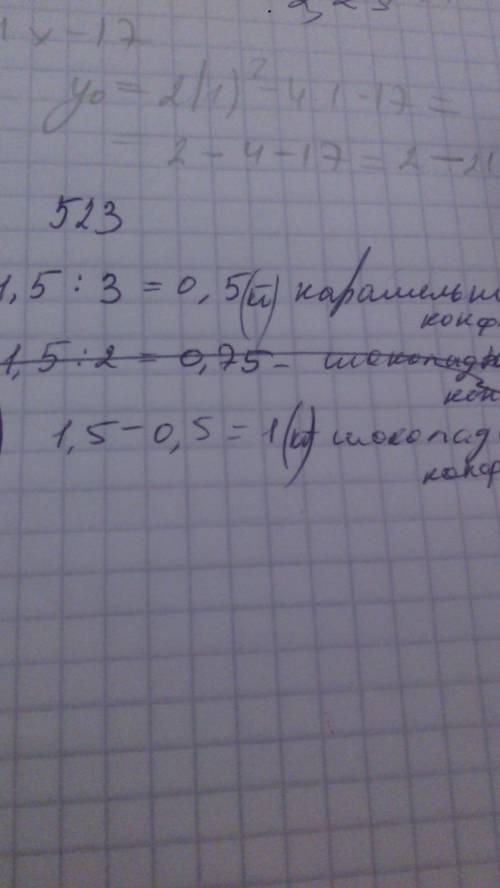 x - 17
y₀ = 2(1)² - 4·1 - 17 =
= 2 - 4 - 17 = 2 - 21
523
1,5 : 3 = 0,5 (кг) карамельн
конф
1,5 : 2 = 0,75 - шоколадн
кон
) 1,5 - 0,5 = 1 (кг) шоколад
конф